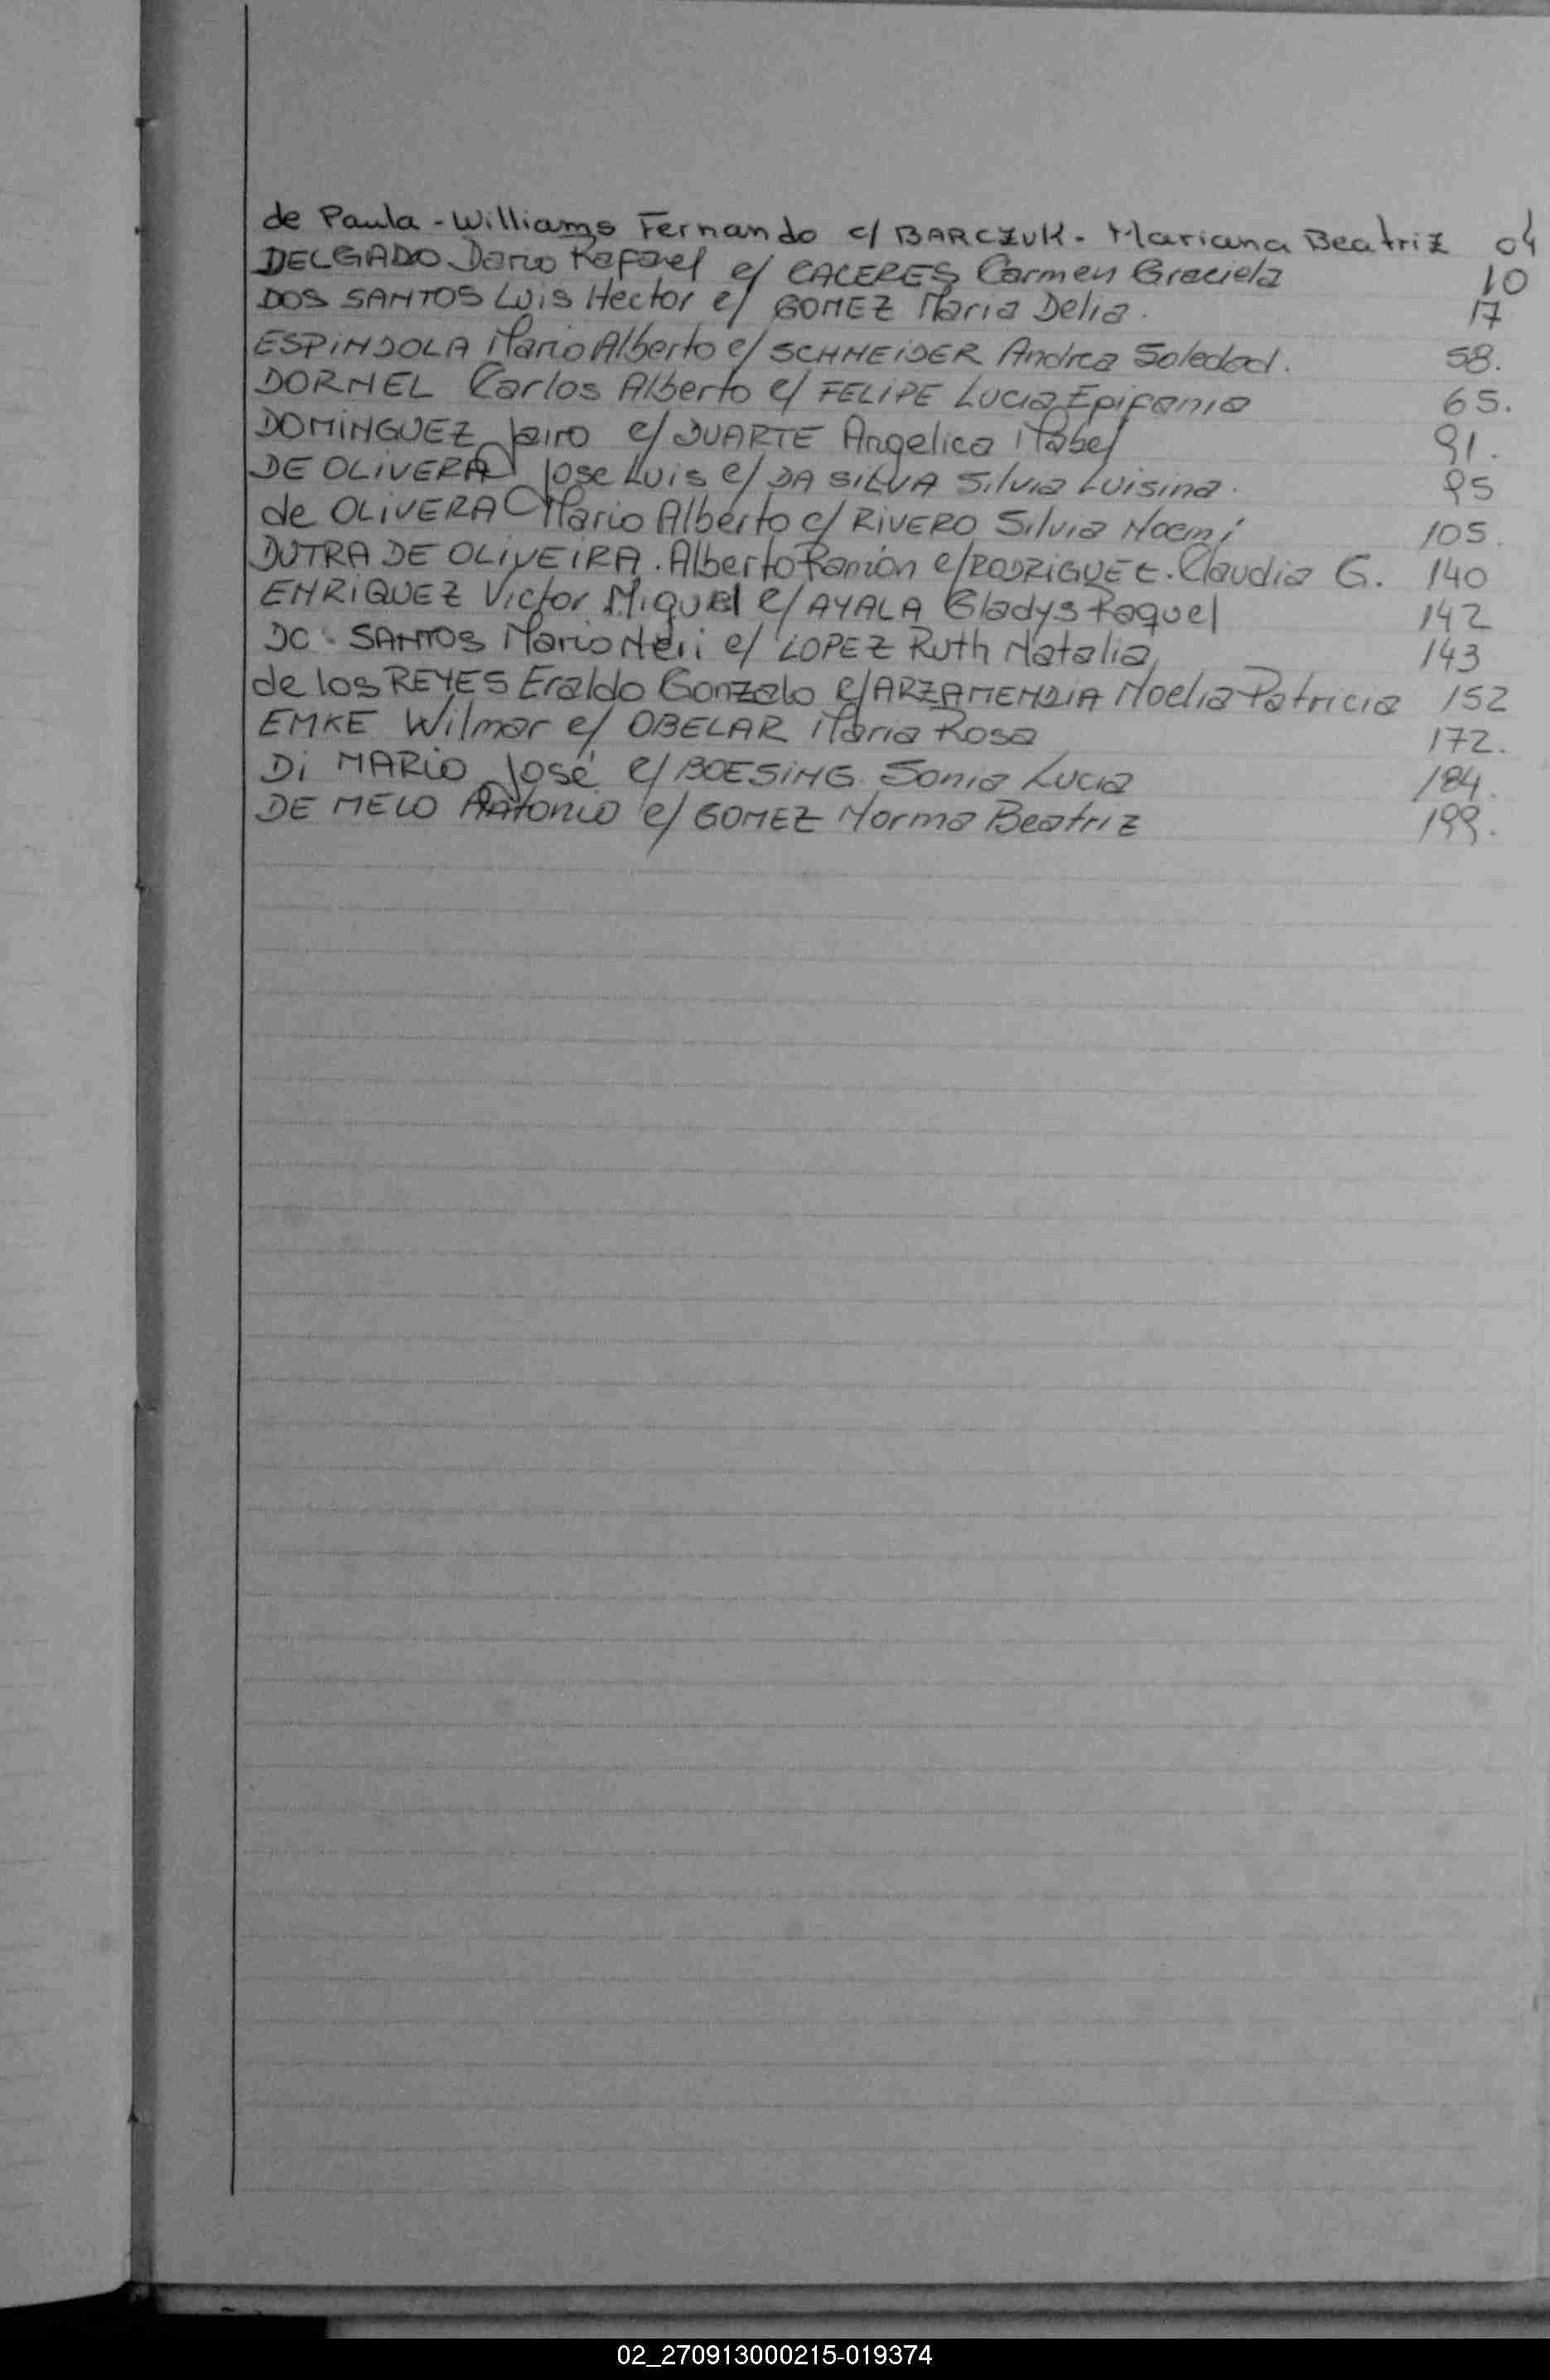 de Paula - Williams Fernando c/ BARCZUK - Mariana Beatriz 04
DELGADO Dario Rafael c/ CACERES Carmen Graciela 10
DOS SANTOS Luis Hector c/ GOMEZ Maria Delia. 17
ESPINDOLA Mario Alberto c/ SCHNEIDER Andrea Soledad. 58.
DORNEL Carlos Alberto c/ FELIPE Lucia Epifania 65.
DOMINGUEZ Jairo c/ DUARTE Angelica Mabel 91.
DE OLIVERA Jose Luis c/ DA SILVA Silvia Luisina. 95
de OLIVERA Mario Alberto c/ RIVERO Silvia Noemi 105.
DUTRA DE OLIVEIRA. Alberto Ramón c/ RODRIGUEZ. Claudia G. 140
ENRIQUEZ Victor Miguel c/ AYALA Gladys Raquel 142
SANTOS Mario Neri c/ LOPEZ Ruth Natalia 143
de los REYES Eraldo Gonzalo c/ ARZAMENDIA Noelia Patricia 152
EMKE Wilmar c/ OBELAR Maria Rosa 172.
Di MARIO José c/ BOESING Sonia Lucia 184.
DE MELO Antonio c/ GOMEZ Norma Beatriz 199.
02_270913000215-019374